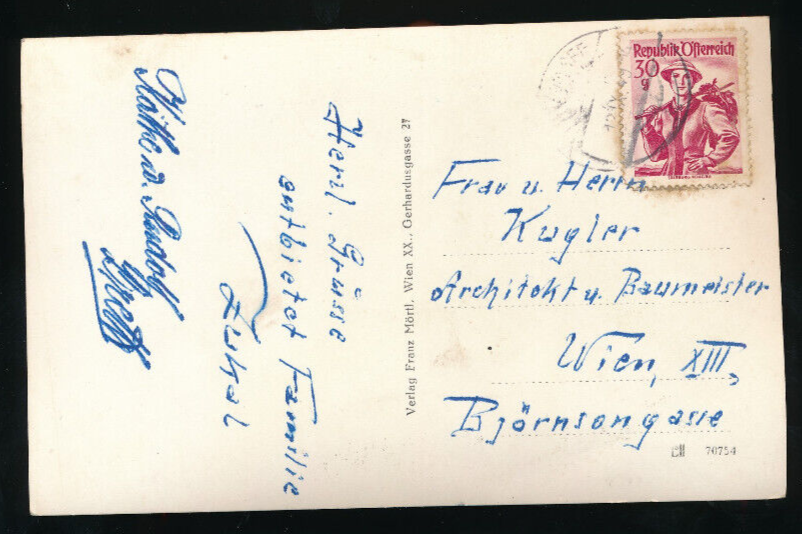 Republik Österreich
30
g
Herzl. Grüsse
entbietet Familie
Käthe u. Rudolf
Verlag Franz Mörtl, Wien XX., Gerhardusgasse 27
Frau u. Herrn
Kugler
Architekt u. Baumeister
Wien, XIII,
Björnsongasse
70754